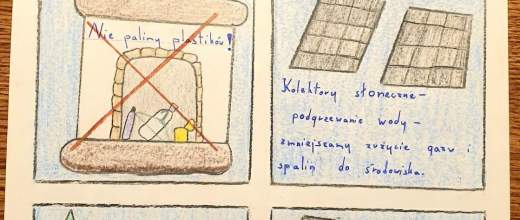 Nie palimy plastików!
Kolektory słoneczne -
podgrzewanie wody -
zmniejszamy zużycie gazu i
spalin do środowiska.